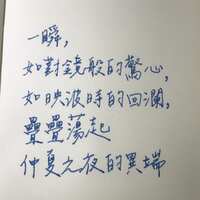 一瞬,
如對鏡般的驚心,
如映波時的回瀾,
疊疊蕩起
仲夏之夜的異端